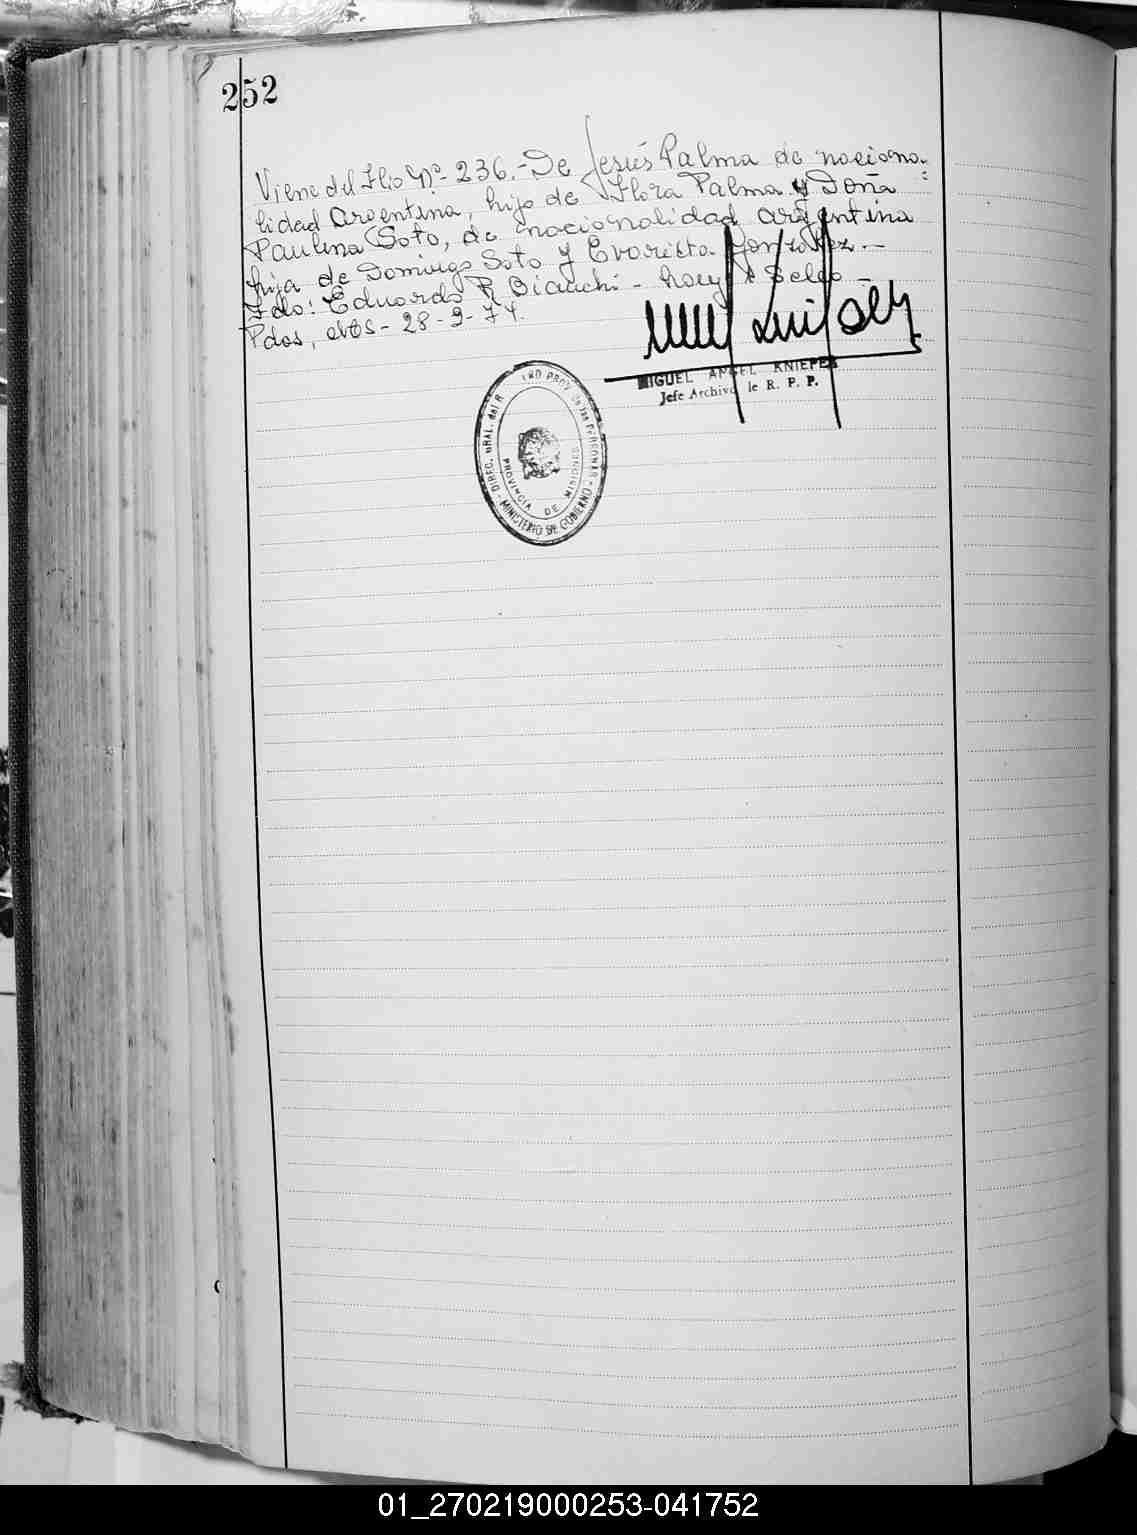 252
Viene del Flio Nº- 236.- De Jesús Palma de naciona-
lidad Argentina, hijo de Flora Palma y Doña
Paulina Soto, de nacionalidad argentina
hija de Domingo Soto y Evarista Gonzalez.-
Fdo: Eduardo R Bianchi - hay 1 Sello -
Pdas, 28-9-74.
MIGUEL ANGEL KNIEPER
Jefe Archivo de R. P. P.
DIREC. GRAL. del R. PROV. de las PERSONAS - MINISTERIO DE GOBIERNO -
PROVINCIA DE MISIONES
01_270219000253-041752